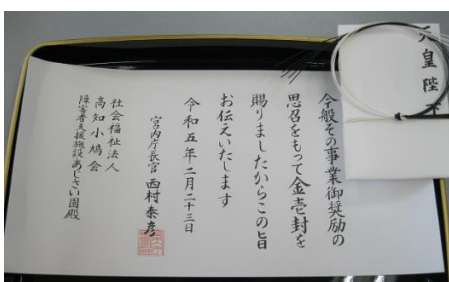 天皇陛下
今般その事業御奨励の
思召をもって金壱封を
賜りましたからこの旨
お伝えいたします
令和五年二月二十三日
宮内庁長官 西村泰彦
社会福祉法人
高知小鳩会
障害者支援施設あじさい園殿